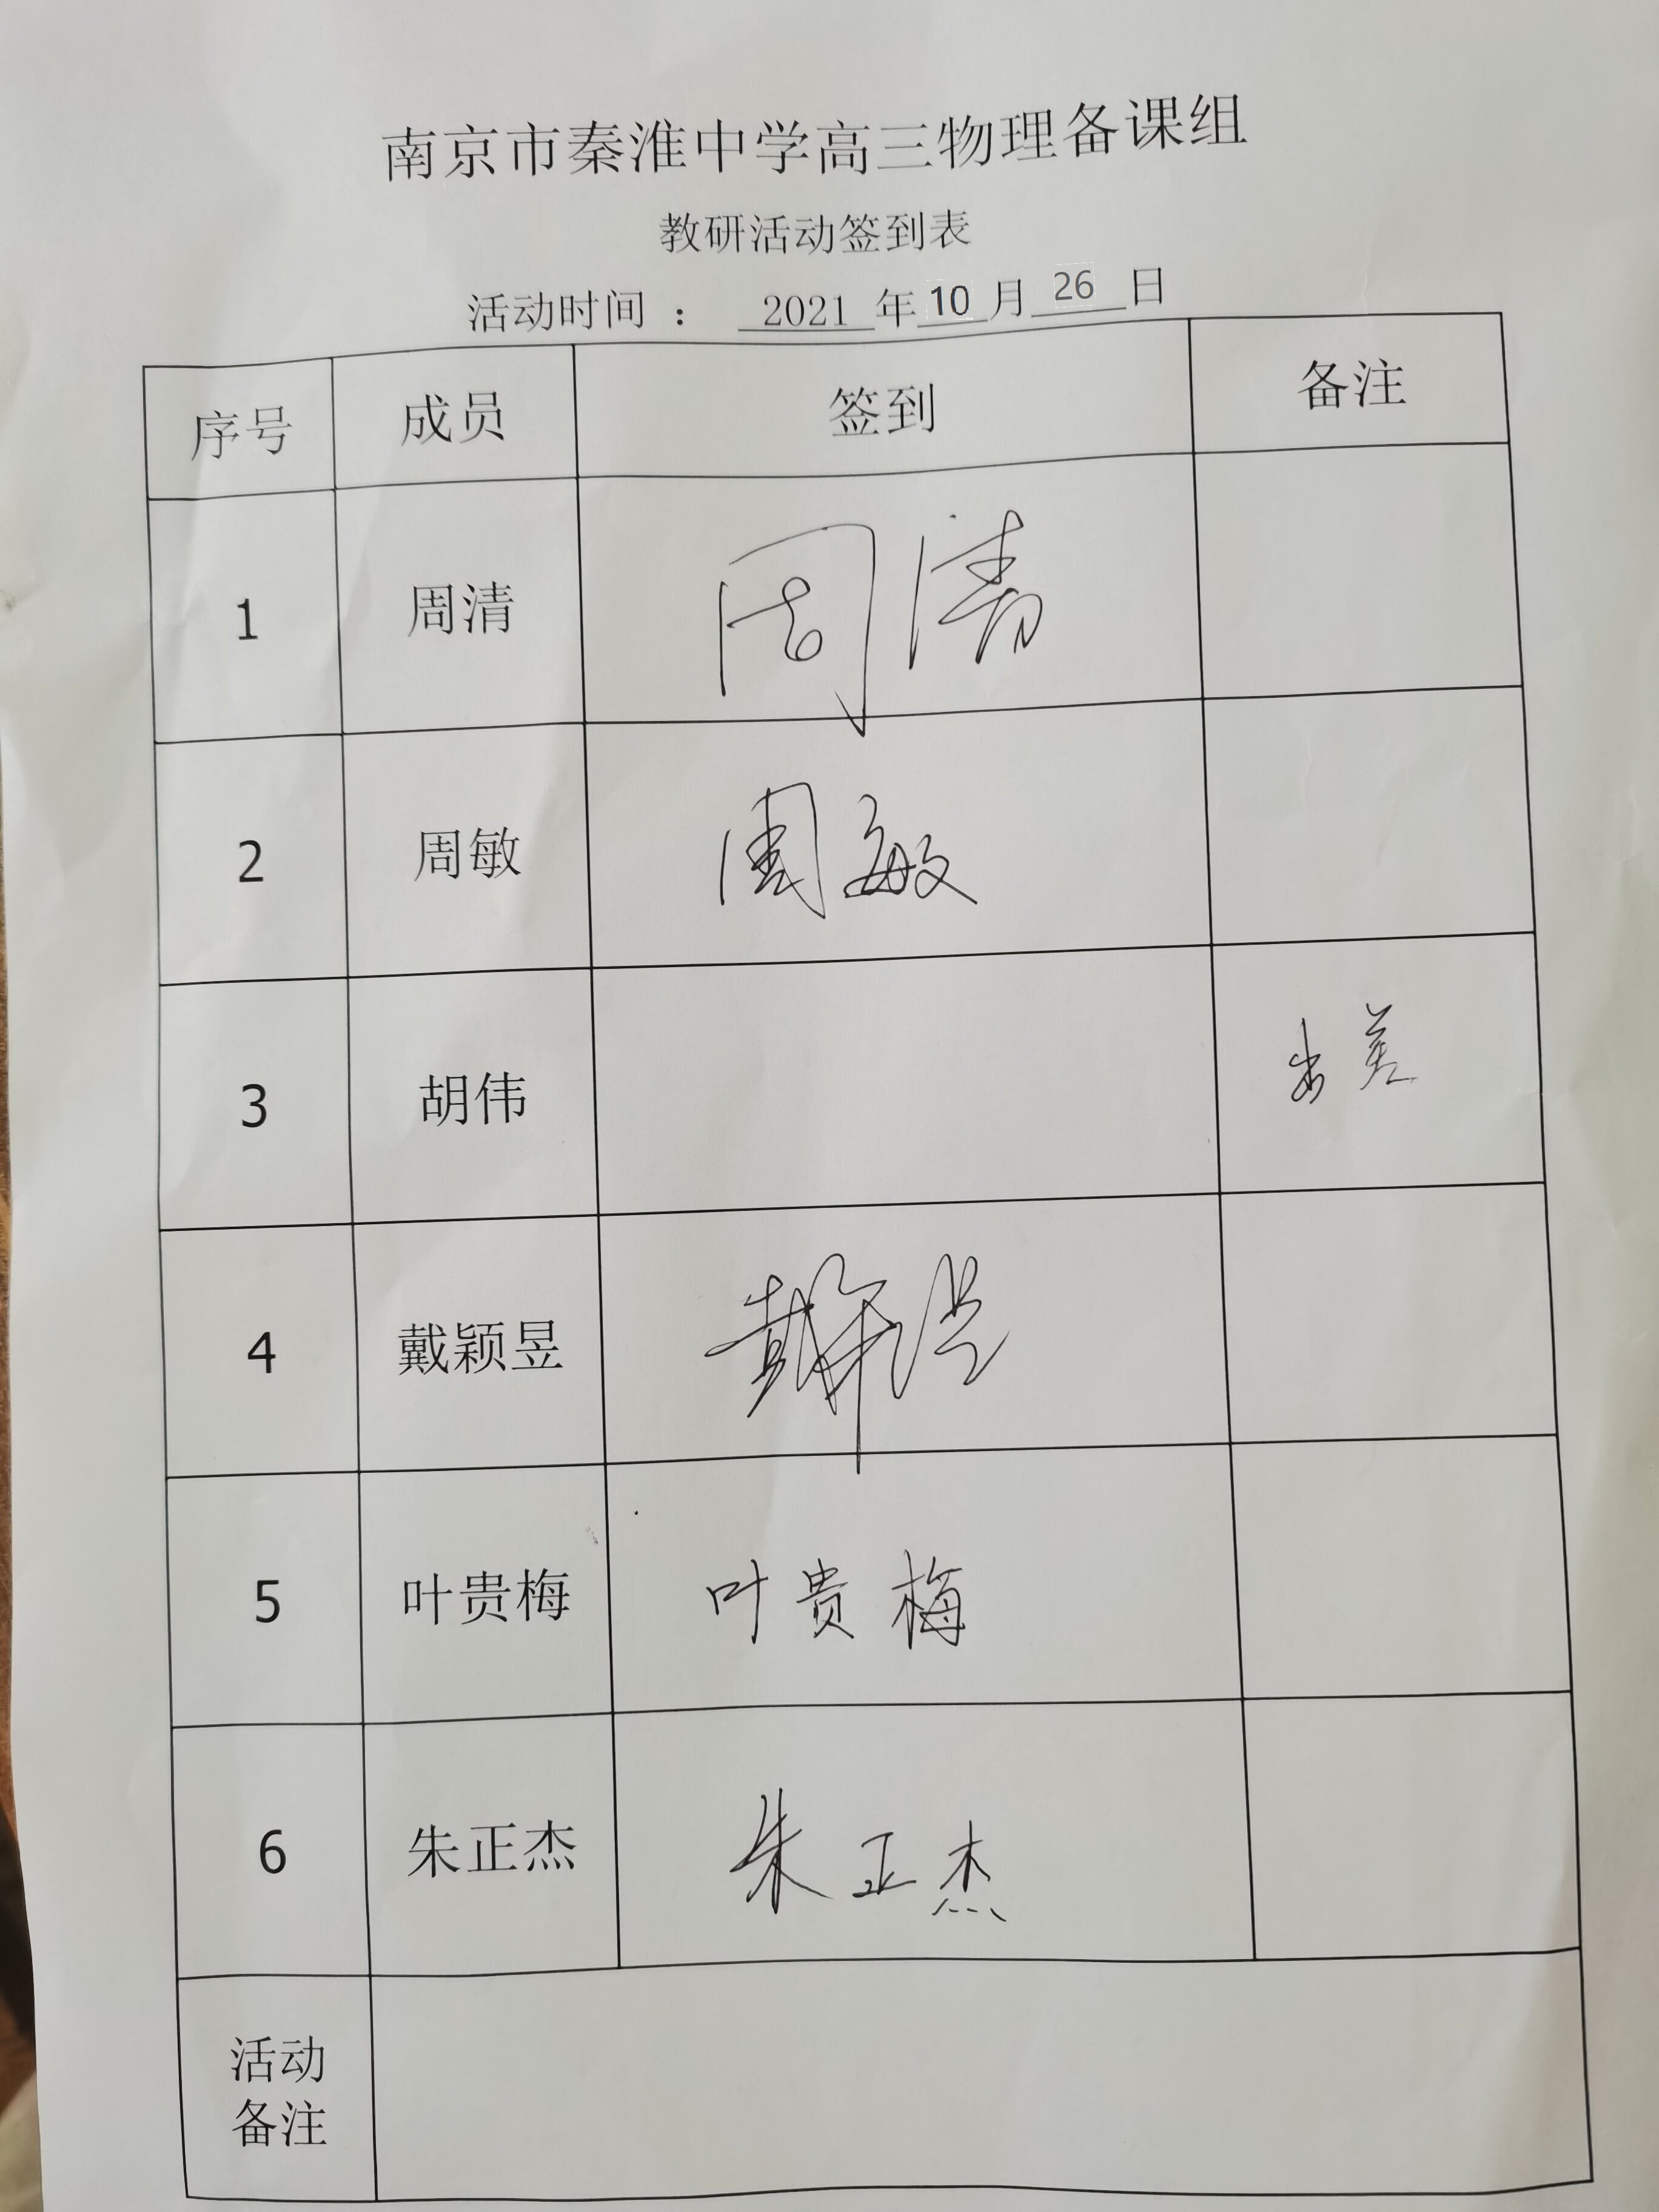 南京市秦淮中学高三物理备课组
教研活动签到表
活动时间 ： 2021 年 10 月 26 日
序号 成员 签到 备注
1 周清 周清
2 周敏 周敏
3 胡伟 出差
4 戴颖昱
5 叶贵梅 叶贵梅
6 朱正杰 朱正杰
活动
备注